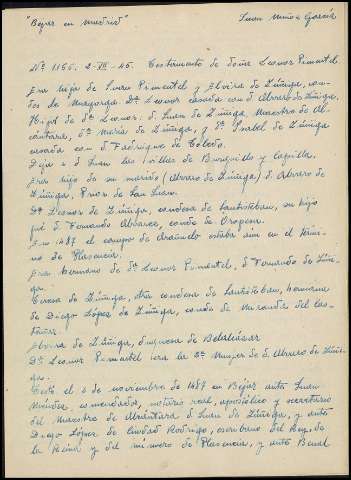 "Bejar en Madrid" Juan Muñoz García
Nº 1156. 2-III-46. Testamento de doña Leonor Pimentel
Era hija de Juan Pimentel y Elvira de Zúñiga, con-
des de Mayorga. Dª Leonor casada con d. Alvaro de Zúñiga.
Hijos de Dª Leonor: d. Juan de Zúñiga, Maestre de Al-
cántara, dª María de Zúñiga, y dª Isabel de Zúñiga
casada con d. Fadrique de Toledo.
Deja a d. Juan las villas de Burguillo y Capilla.
Era hijo de su marido (Alvaro de Zúñiga) d. Alvaro de
Zúñiga, Prior de San Juan.
Dª Leonor de Zúñiga, condesa de Santisteban, su hijo
fué d. Fernando Alvarez, conde de Oropesa.
En 1487 el campo de Arañuelo estaba sin en el térmi-
no de Plasencia.
Era hermano de dª Leonor Pimentel, d. Fernando de Zúñi-
ga.
Teresa de Zúñiga, otra condesa de Santisteban, hermana
de Diego López de Zúñiga, conde de Miranda del Cas-
tañar.
Elvira de Zúñiga, duquesa de Belalcázar
Dª Leonor Pimentel era la 2ª mujer de d. Alvaro de Zúñi-
ga.
Testó el 2 de noviembre de 1487 en Béjar ante Juan
Méndez, comendador, notario real, apostólico y secretario
del maestre de Alcántara d. Juan de Zúñiga, y ante
Diego López de Ciudad Rodrigo, escribano del Rey, de
la Reina y del número de Plasencia, y ante Bernal